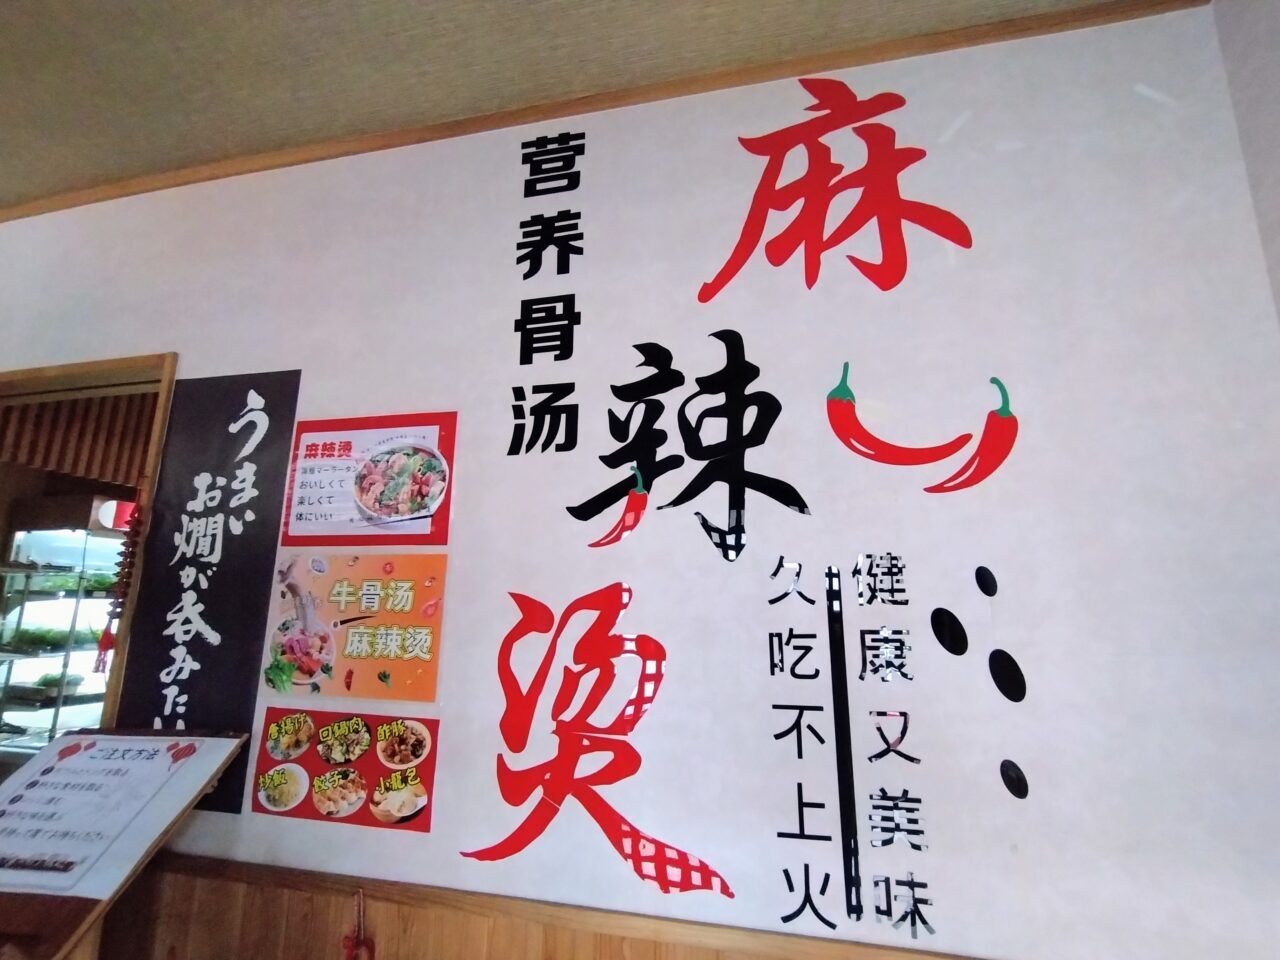 麻辣烫
营养骨汤
健康又美味
久吃不上火
うまい
お燗が呑みたい
麻辣烫
マーラータン
おいしくて
楽しくて
体にいい
牛骨汤
麻辣烫
唐揚げ
回鍋肉
酢豚
炒飯
餃子
小籠包
ご注文方法